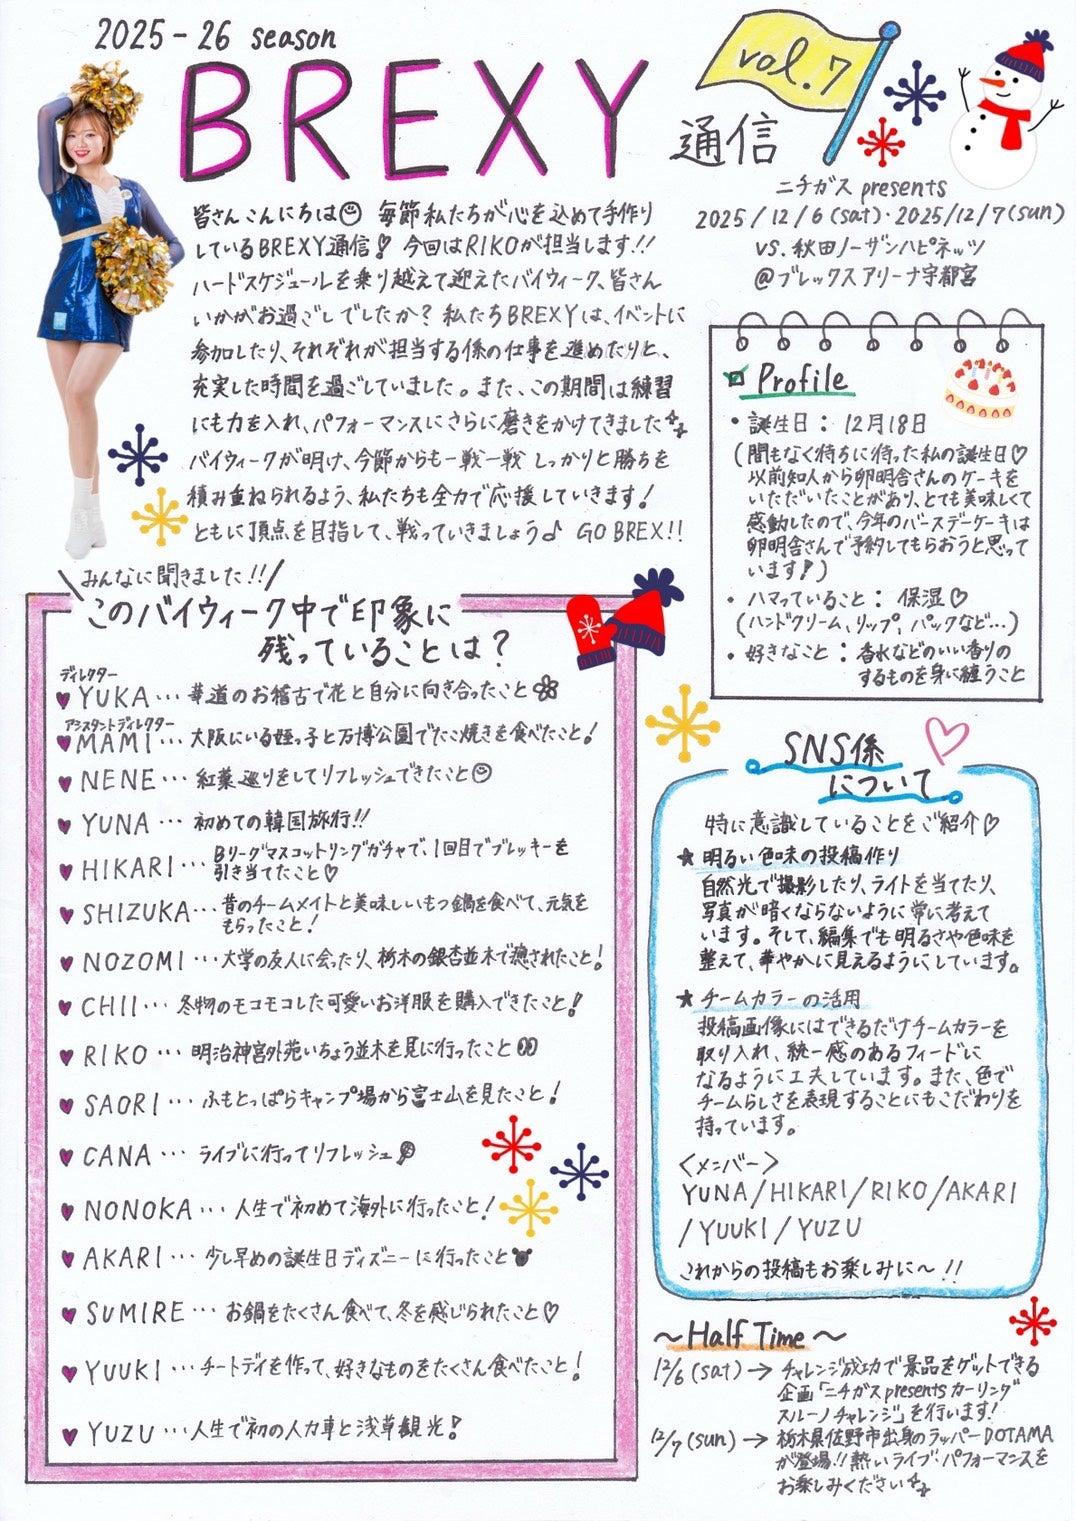 2025-26 season
BREXY
vol.7
通信
ニチガス presents
2025/12/6(sat)・2025/12/7(sun)
vs.秋田ノーザンハピネッツ
@ブレックスアリーナ宇都宮
皆さんこんにちは 毎節私たちが心を込めて手作り
しているBREXY通信! 今回はRIKOが担当します!!
ハードスケジュールを乗り越えて迎えたバイウィーク、皆さん
いかがお過ごしでしたか? 私たちBREXYは、イベントに
参加したり、それぞれが担当する係の仕事を進めたりと、
充実した時間を過ごしていました。また、この期間は練習
にも力を入れ、パフォーマンスにさらに磨きをかけてきました
バイウィークが明け、今節からも一戦一戦しっかりと勝ちを
積み重ねられるよう、私たちも全力で応援していきます!
ともに頂点を目指して、戦っていきましょう♪ GO BREX!!
Profile
・誕生日: 12月18日
(間もなく待ちに待った私の誕生日♡
以前知人から卵明舎さんのケーキを
いただいたことがあり、とても美味しくて
感動したので、今年のバースデーケーキは
卵明舎さんで予約してもらおうと思って
います!)
・ハマっていること: 保湿♡
(ハンドクリーム、リップ、パックなど…)
・好きなこと: 香水などのいい香りの
するものを身に纏うこと
\みんなに聞きました!!/
このバイウィーク中で印象に
残っていることは?
ディレクター
♥YUKA…華道のお稽古で花と自分に向き合ったこと
アシスタントディレクター
♥MAMI…大阪にいる姪っ子と万博公園でたこ焼きを食べたこと!
♥NENE…紅葉巡りをしてリフレッシュできたこと
♥YUNA…初めての韓国旅行!!
♥HIKARI…Bリーグマスコットリングガチャで、1回目でブレッキーを
引き当てたこと♡
♥SHIZUKA…昔のチームメイトと美味しいもつ鍋を食べて、元気を
もらったこと!
♥NOZOMI…大学の友人に会ったり、栃木の銀杏並木で癒されたこと!
♥CHII…冬物のモコモコした可愛いお洋服を購入できたこと!
♥RIKO…明治神宮外苑いちょう並木を見に行ったこと
♥SAORI…ふもとっぱらキャンプ場から富士山を見たこと!
♥CANA…ライブに行ってリフレッシュ
♥NONOKA…人生で初めて海外に行ったこと!
♥AKARI…少し早めの誕生日ディズニーに行ったこと
♥SUMIRE…お鍋をたくさん食べて、冬を感じられたこと♡
♥YUUKI…チートデイを作って、好きなものをたくさん食べたこと!
♥YUZU…人生で初の人力車と浅草観光!
SNS係
について
特に意識していることをご紹介♡
★明るい色味の投稿作り
自然光で撮影したり、ライトを当てたり、
写真が暗くならないように常に考えて
います。そして、編集でも明るさや色味を
整えて、華やかに見えるようにしています。
★チームカラーの活用
投稿画像にはできるだけチームカラーを
取り入れ、統一感のあるフィードに
なるように工夫しています。また、色で
チームらしさを表現することにもこだわりを
持っています。
<メンバー>
YUNA/HIKARI/RIKO/AKARI
/YUUKI/YUZU
これからの投稿もお楽しみに〜!!
〜Half Time〜
12/6(sat)→チャレンジ成功で景品をゲットできる
企画「ニチガスpresentsカーリング
スルーノチャレンジ」を行います!
12/7(sun)→栃木県佐野市出身のラッパーDOTAMA
が登場!!熱いライブパフォーマンスを
お楽しみください